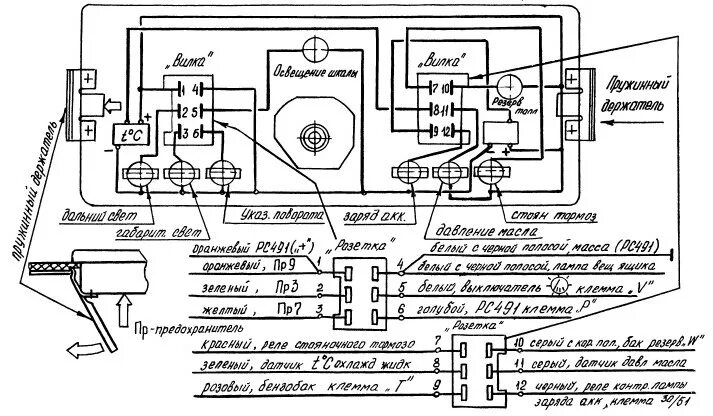 „Вилка"
Освещение шкалы
„Вилка"
1 4
2 5
3 6
7 10
8 11
9 12
Резерв
топл
Пружинный
держатель
+
t°C
−
− +
+
−
+
−
дальний свет
габарит. свет
Указ. поворота
заряд акк.
давление масла
стоян тормоз
пружинный держатель
оранжевый РС491(„+")
„Розетка"
белый с черной полосой, масса (РС491)
оранжевый, Пр9 1
4 белый с черной полосой, лампа вещ ящика
зеленый, Пр3 2
5 белый, выключатель клемма „V"
желтый, Пр7 3
6 голубой, РС491 клемма „Р"
Пр-предохранитель
„Розетка"
красный, реле стояночного тормозо 7
10 серый с кор пол, бак резерв. „W"
зеленый, датчик t°C охлажд жидк 8
11 серый, датчик давл масла
розовый, бензобак клемма „Т" 9
12 черный, реле контр. лампы
заряда акк, клемма 30/51